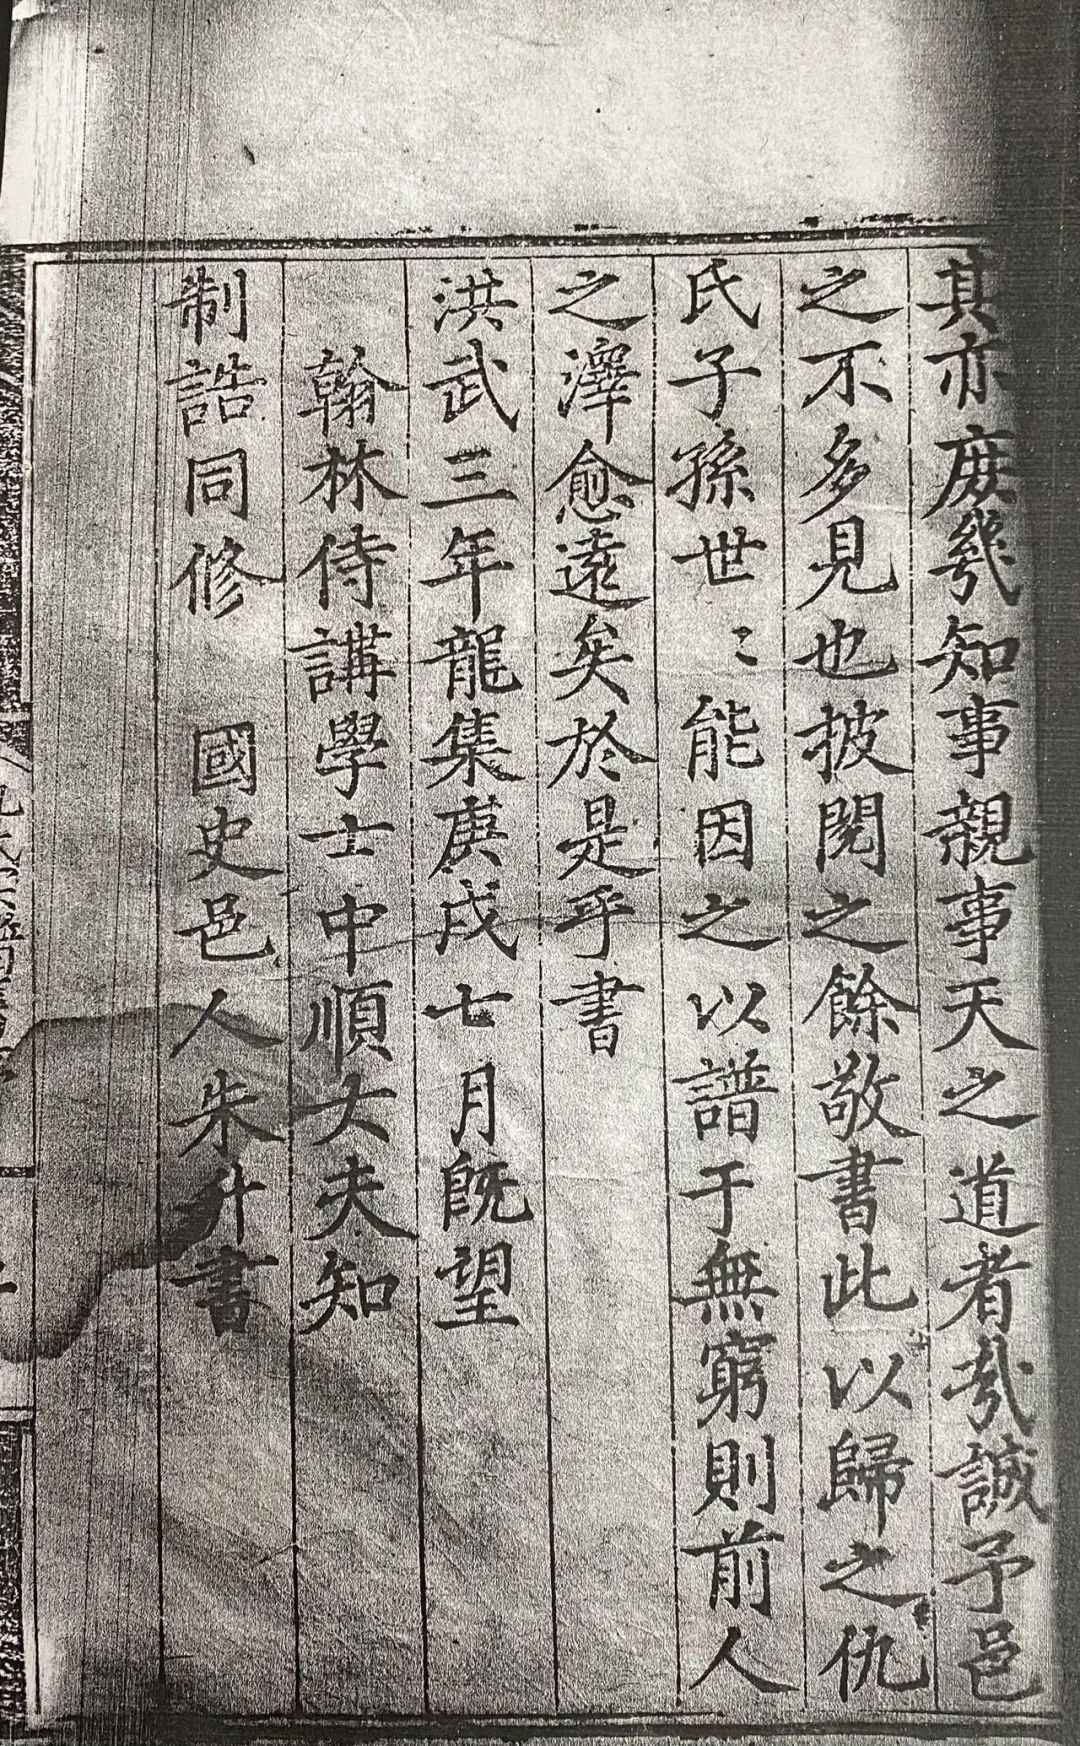 其亦庶幾知事親事天之道者哉誠予邑
之不多見也披閱之餘敬書此以歸之仇
氏子孫世〻能因之以譜于無窮則前人
之澤愈遠矣於是乎書
洪武三年龍集庚戌七月既望
翰林侍講學士中順大夫知
制誥同修 國史邑人朱升書